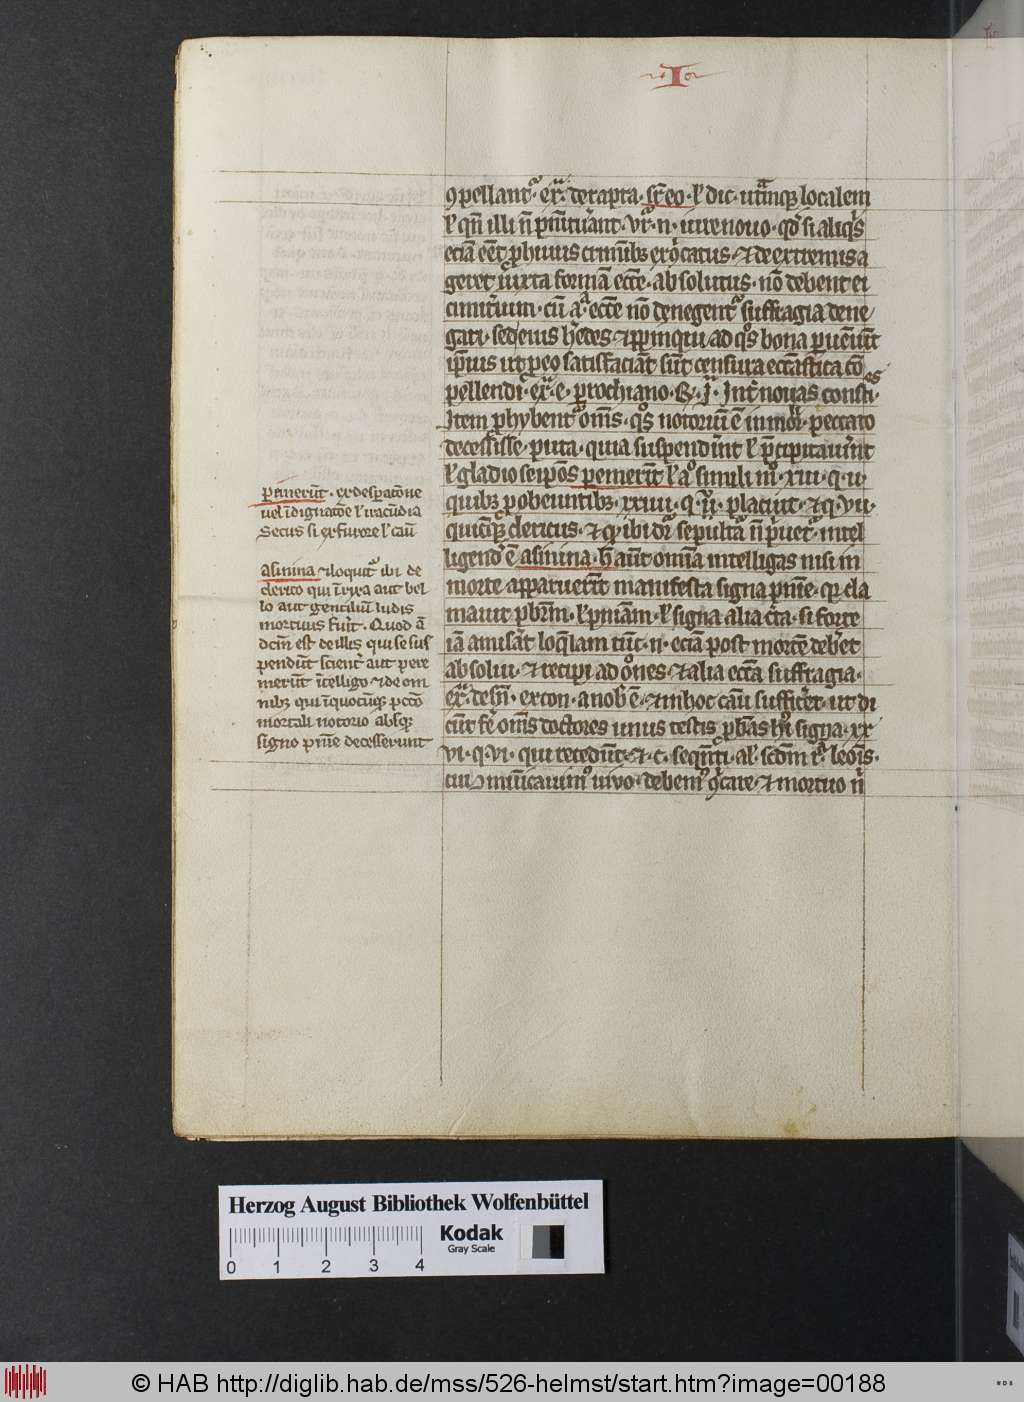 I
ꝯpellantᷣ· ex̄· de rapta· sr̄ eo· ł dic· utrūque localem
ł qn̄ illi n̄ pn̄ituerant· vr̄· n· iure nouo· qd̓ si aliq̓s
eciā eēt ꝑ huius criminibꝫ exꝯicatus ⁊ de extremis a
geret iuxta formā ecc̄e· absolutus· nō debent ei
cimit̓ium· cū a ecc̄e nō denegentᷣ suffragia dene
gari· sed eius h̓edes ⁊ ꝓpinqui ad q̓s bona ꝑuen̄ūt
ip̄ius ut ꝓ eo satisfaciāt sūt censura eccl̄astica cō
pellendi· ex̄· e· parochiano· &· j· Int̓ nouas consti·
Item ꝓhybentᷣ om̄s· q̓s notoriū ē in mor̄· peccato
decessisse· puta· quia suspendr̄nt ł p̄cipitauer̄nt
ł gladio seipōs pemerūt ł aº simili mº· xiii· q· ii·
quibꝫ ꝓ obeuntibꝫ· xxiiii· q· ii· placuit· ⁊ q· vii·
quicūqꝫ clericus· ⁊ qꝫ ibi dr̄ sepultā n̄ p̓uetᷣ· intel
ligend̄ ē asinina· h̄ aūt omnia intelligas nisi in
morte apparuerīt manifesta signa pn̄ie· qꝫ cla
mauit pb̄rm̄· ł pn̄iam· ł signa alia cͥta· si forte
iā amis̓at loq̄lam tūc· n· eciā post mortē deb̓et
absolui· ⁊ recipi ad oꝯnes· ⁊ alia ecc̄a suffragia·
ex̄· de sn̄· excon· a nob̄ ē· ⁊ in hoc cāu suffic̓et· ut di
cūt fe̓ om̄s doctores unus testis ꝓbās h̄i signa· xx
vi· q· vi· qui recedūt· ⁊ c· seqn̄ti· al̄· scd̄m rᵃ· leoīs·
cui ꝯmūicauimᷣ uiuo· debemᷣ ꝯicare· ⁊ mortuo n̄
pemerūt· ex desperatōne
uel īdignatōe ł iracūdia
Secus si ex furore ł cāu
asinina ⁊ loquitᷣ ibi de
clerico qui ī rixa aut bel
lo aut gentiliū ludis
mortuus fuīt· Quod ā
dcm̄ est de illis qui se sus
pendūt scient̓ aut pere
merūt ītelligo ⁊ de om
nibꝫ qui ī quocūqꝫ pctō
mortali notorio absqꝫ
signo pn̄ie decesserunt
Herzog August Bibliothek Wolfenbüttel
0 1 2 3 4
Kodak
Gray Scale
© HAB http://diglib.hab.de/mss/526-helmst/start.htm?image=00188